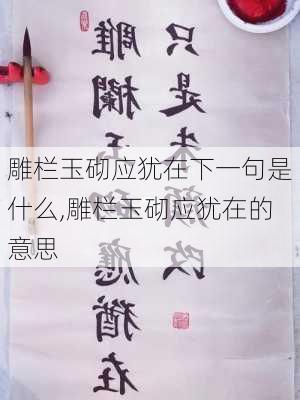 雕栏玉砌应犹在下一句是
什么,雕栏玉砌应犹在的
意思
雕欄玉砌應猶在
只是朱顏改